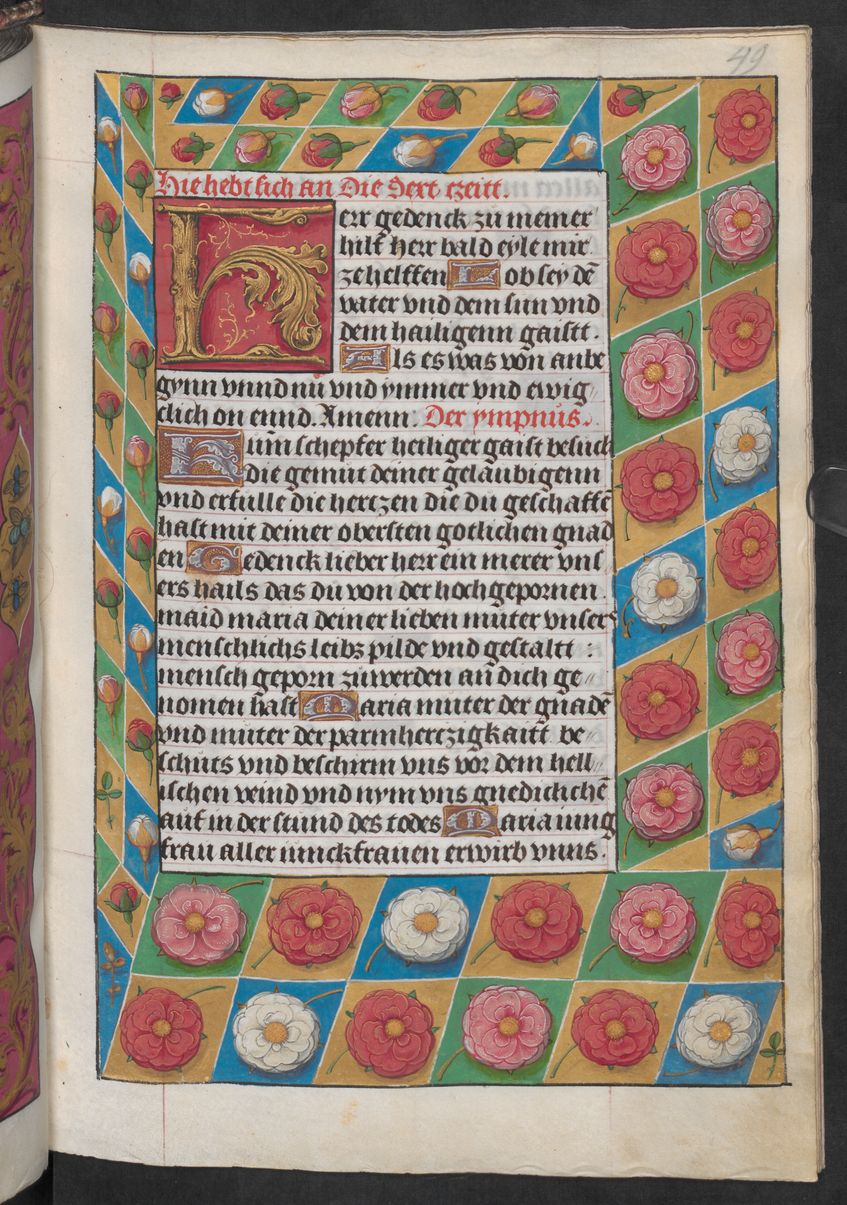 49
Hie hebt sich an Die Sext czeitt.
Herr gedenck zů meiner
hilf̃ herr bald eyle mir
ze helffen Lob sey dē
vater vnd dem sun vnd
dem hailigenn gaistt.
Als es was von anbe
gynn vnnd nů vnd ymmer vnd ewig
clich on ennd. Amenn. Der ympnůs.
Kum̄ schepfer heiliger gaist besůch
die gemůt deiner gelaubigenn
vnd erfulle die hertzen die dů geschaffē
hast mit deiner obersten gotlichen gnad
en Gedenck lieber herr ein merer vns
ers hails das dů von der hochgepornen
maid maria deiner lieben můter vnsers
menschlichs leibs pilde vnd gestaltt
mensch geporn zůwerden an̄ dich ge
nomen hast Maria můter der gnadē
vnd můter der parmhertzigkaitt be
schůts vnd beschirm vns vor dem hell
ischen veind vnd nym vns gnediclichē
auf in der stund des todes Maria iung
frau aller iunckfrauen erwirb vnns.